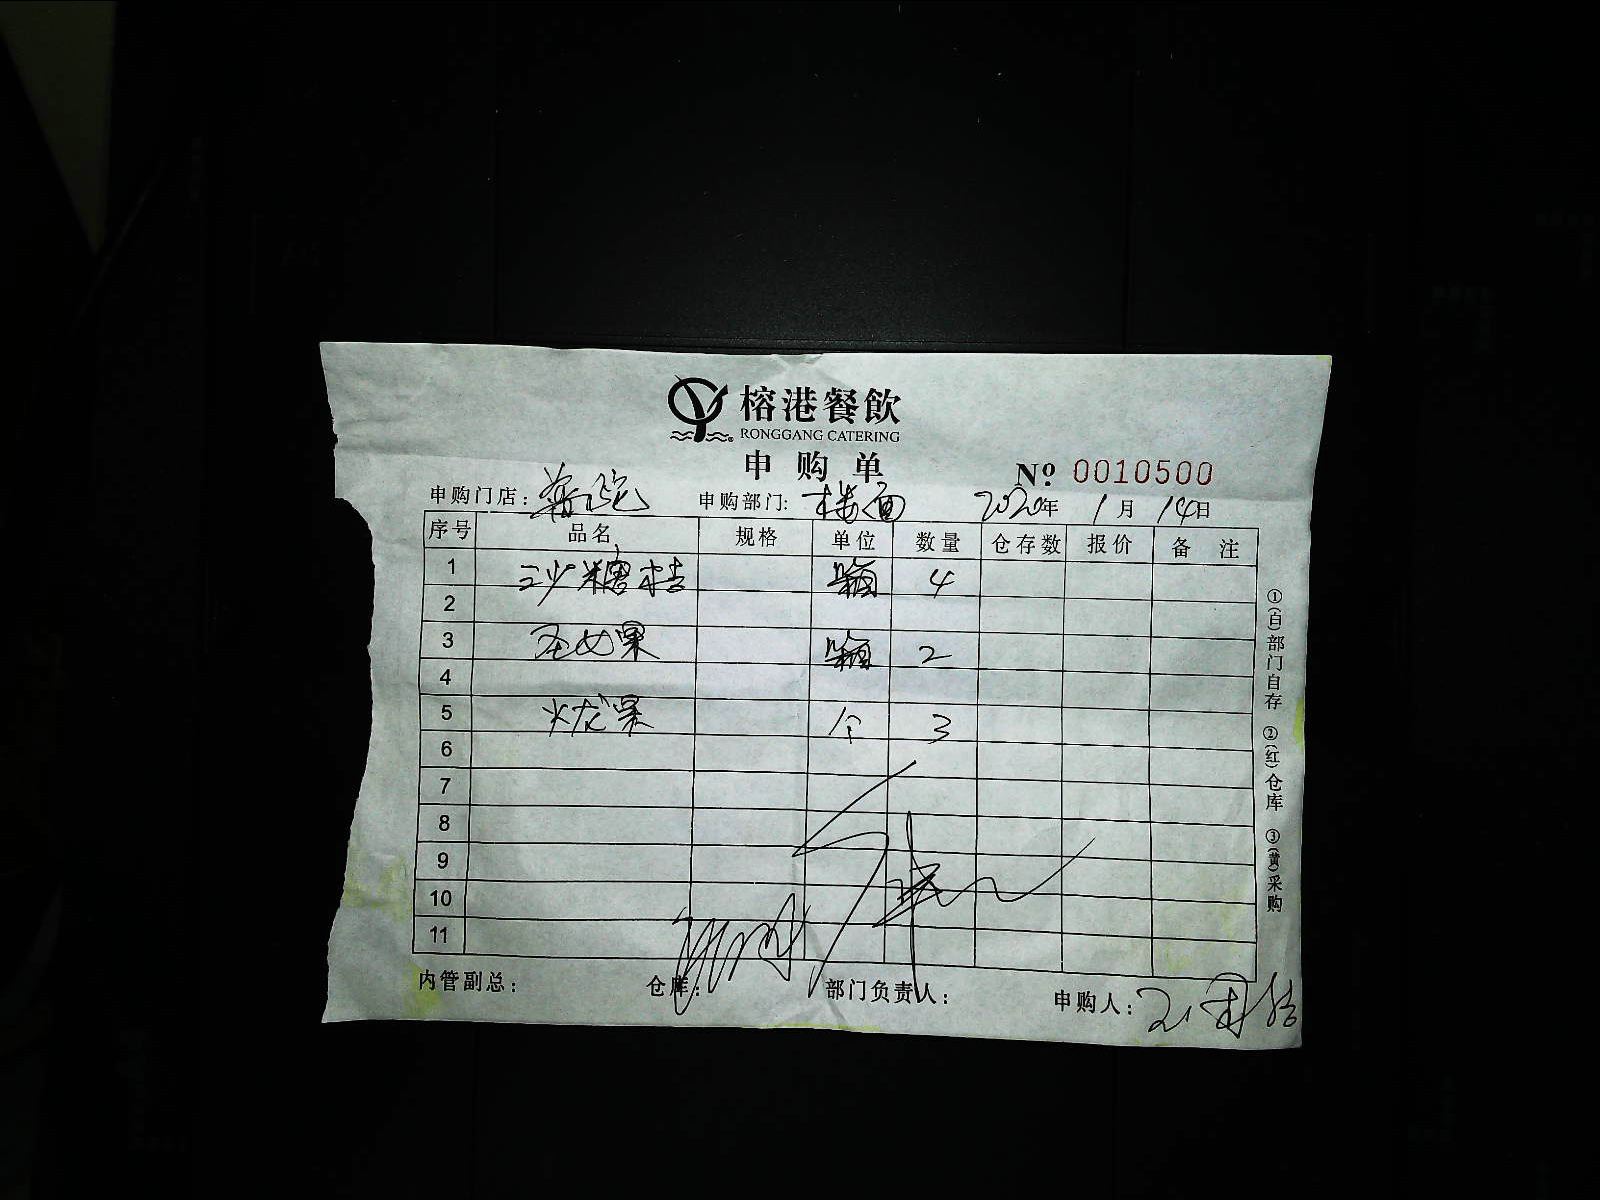 榕港餐飲
RONGGANG CATERING
申购单
№ 0010500
申购门店：普陀 申购部门：楼面 2020年1月14日
序号 品名 规格 单位 数量 仓存数 报价 备注
1 沙糖桔 箱 4
2
3 圣女果 箱 2
4
5 火龙果 个 3
6
7
8
9
10
11
内管副总： 仓库： 部门负责人： 申购人：
①(白)部门自存 ②(红)仓库 ③(黄)采购